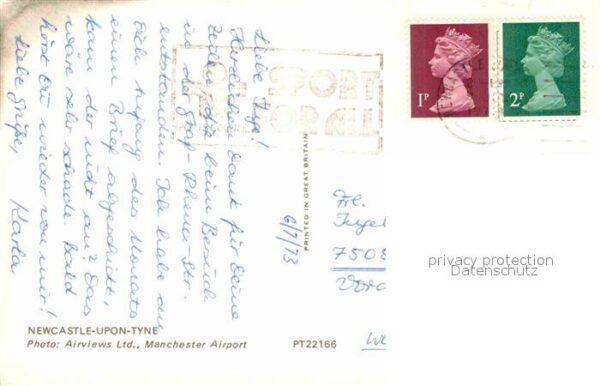 Liebe Inge!
Herzlichen Dank für Deine
Zeilen, die beim Besuch
in der Graf-Rhena-Str.
entstanden. Ich habe am
Anfang des Monats
einen Brief abgeschickt,
kam der nicht an? Das
wäre sehr schade. Bald
hörst Du wieder von mir!
Liebe Grüße,
Karla
SPORT
FOR ALL
1P
2P
PRINTED IN GREAT BRITAIN
6/7/73
Frl.
Inge
7505
privacy protection
Datenschutz
NEWCASTLE-UPON-TYNE
Photo: Airviews Ltd., Manchester Airport
PT22166